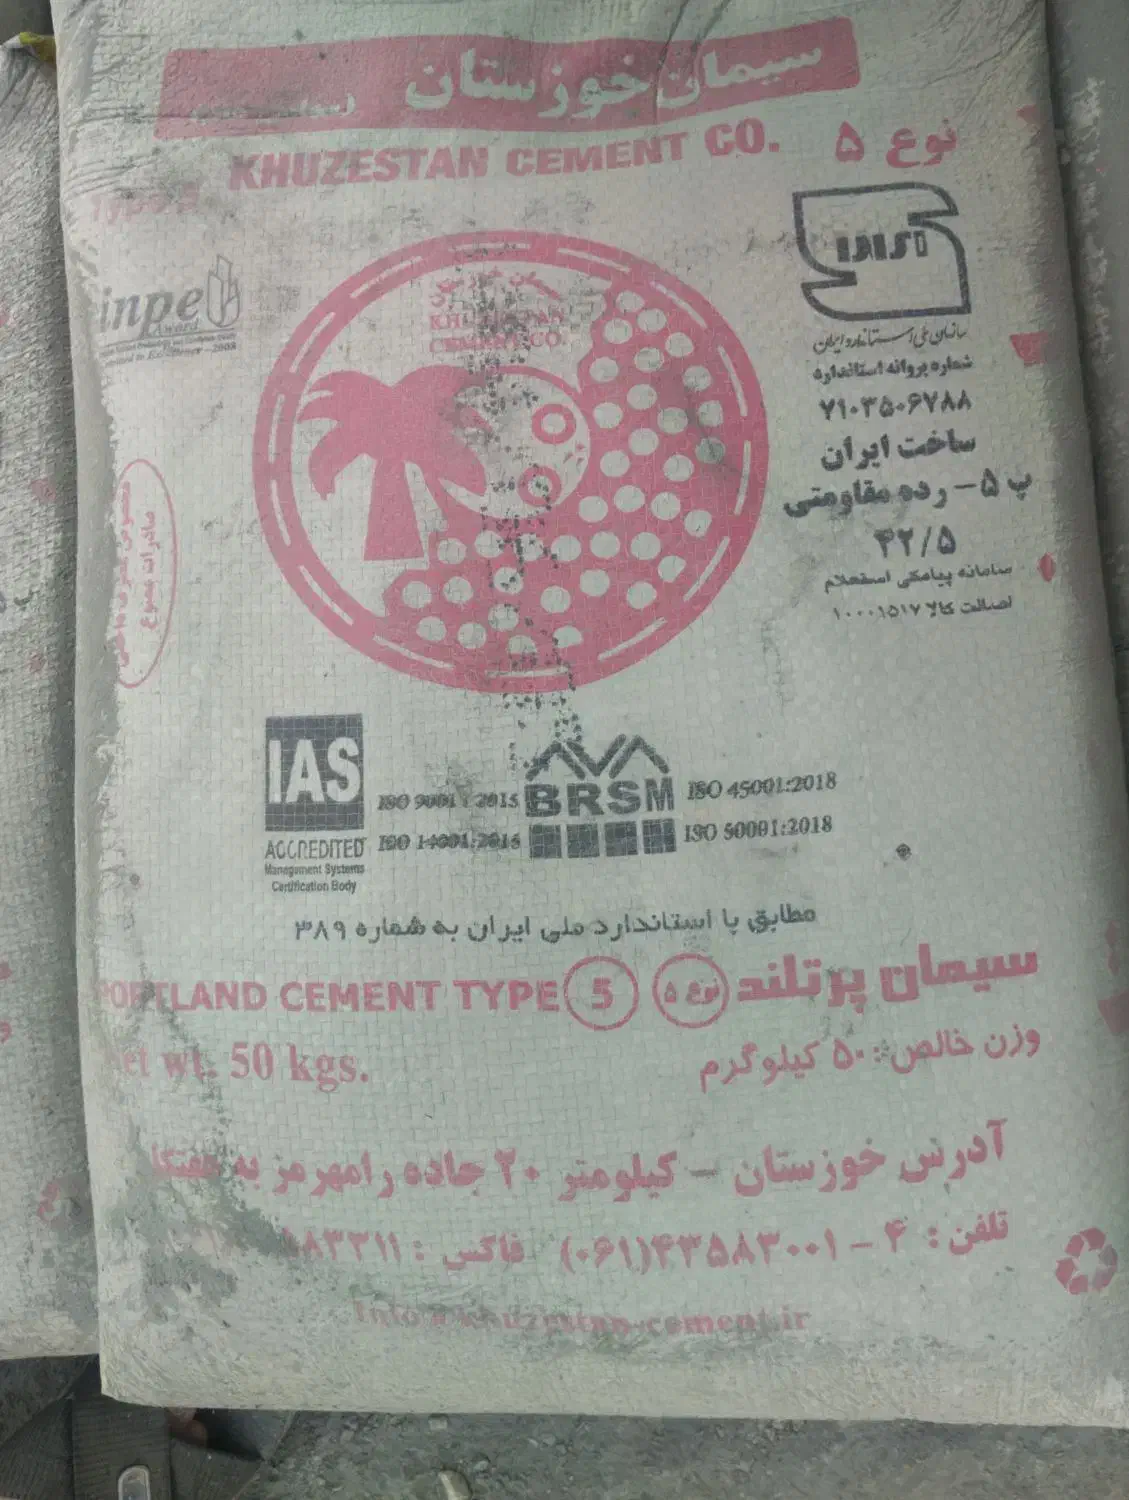 سیمان خوزستان
KHUZESTAN CEMENT CO.
نوع ۵
Type 5
inpe
Award
2008
KHUZESTAN
CEMENT CO.
سازمان ملی استاندارد ایران
شماره پروانه استاندارد
۷۱۰۳۵۰۶۷۸۸
ساخت ایران
پ ۵ – رده مقاومتی
۴۲/۵
سامانه پیامکی استعلام
اصالت کالا ۱۰۰۰۱۵۱۷
صادرات ممنوع
IAS
ACCREDITED
Management Systems
Certification Body
ISO 9001:2015
ISO 14001:2015
BRSM
ISO 45001:2018
ISO 50001:2018
مطابق با استاندارد ملی ایران به شماره ۳۸۹
سیمان پرتلند نوع ۵
PORTLAND CEMENT TYPE 5
وزن خالص : ۵۰ کیلوگرم
et wt. 50 kgs.
آدرس خوزستان – کیلومتر ۲۰ جاده رامهرمز به هفتکل
تلفن : ۴ – ۴۳۵۸۳۰۰۱(۰۶۱) فاکس : ۵۸۳۳۱۱
Info@khuzestan-cement.ir